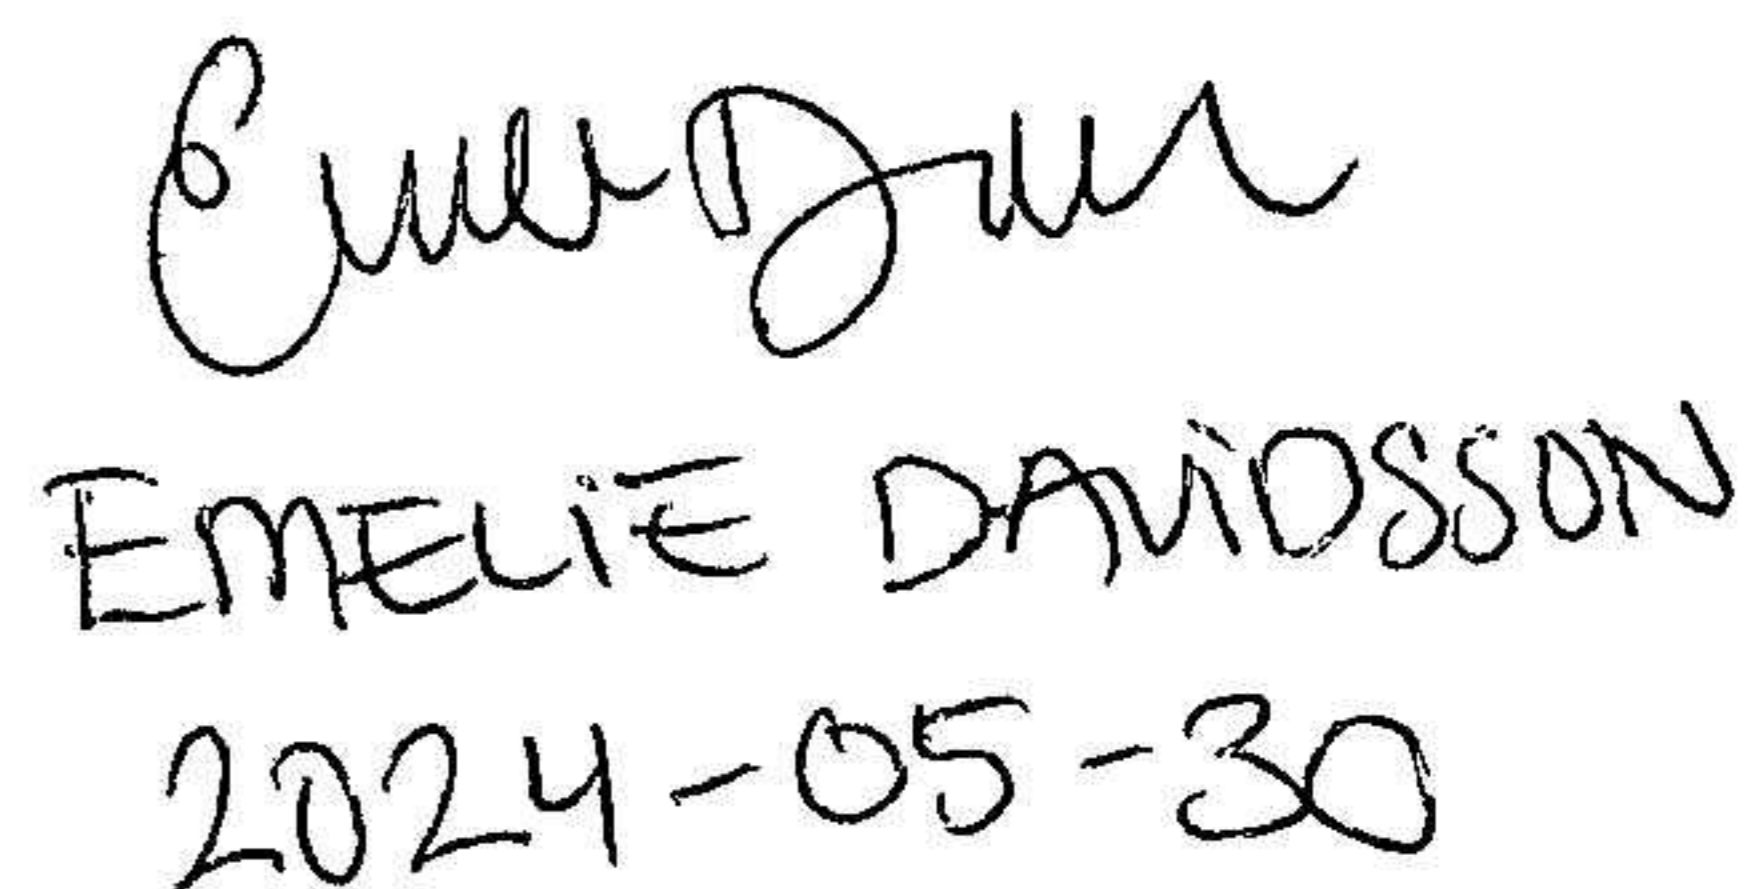 EMELIE DAVIDSSON
2024-05-30